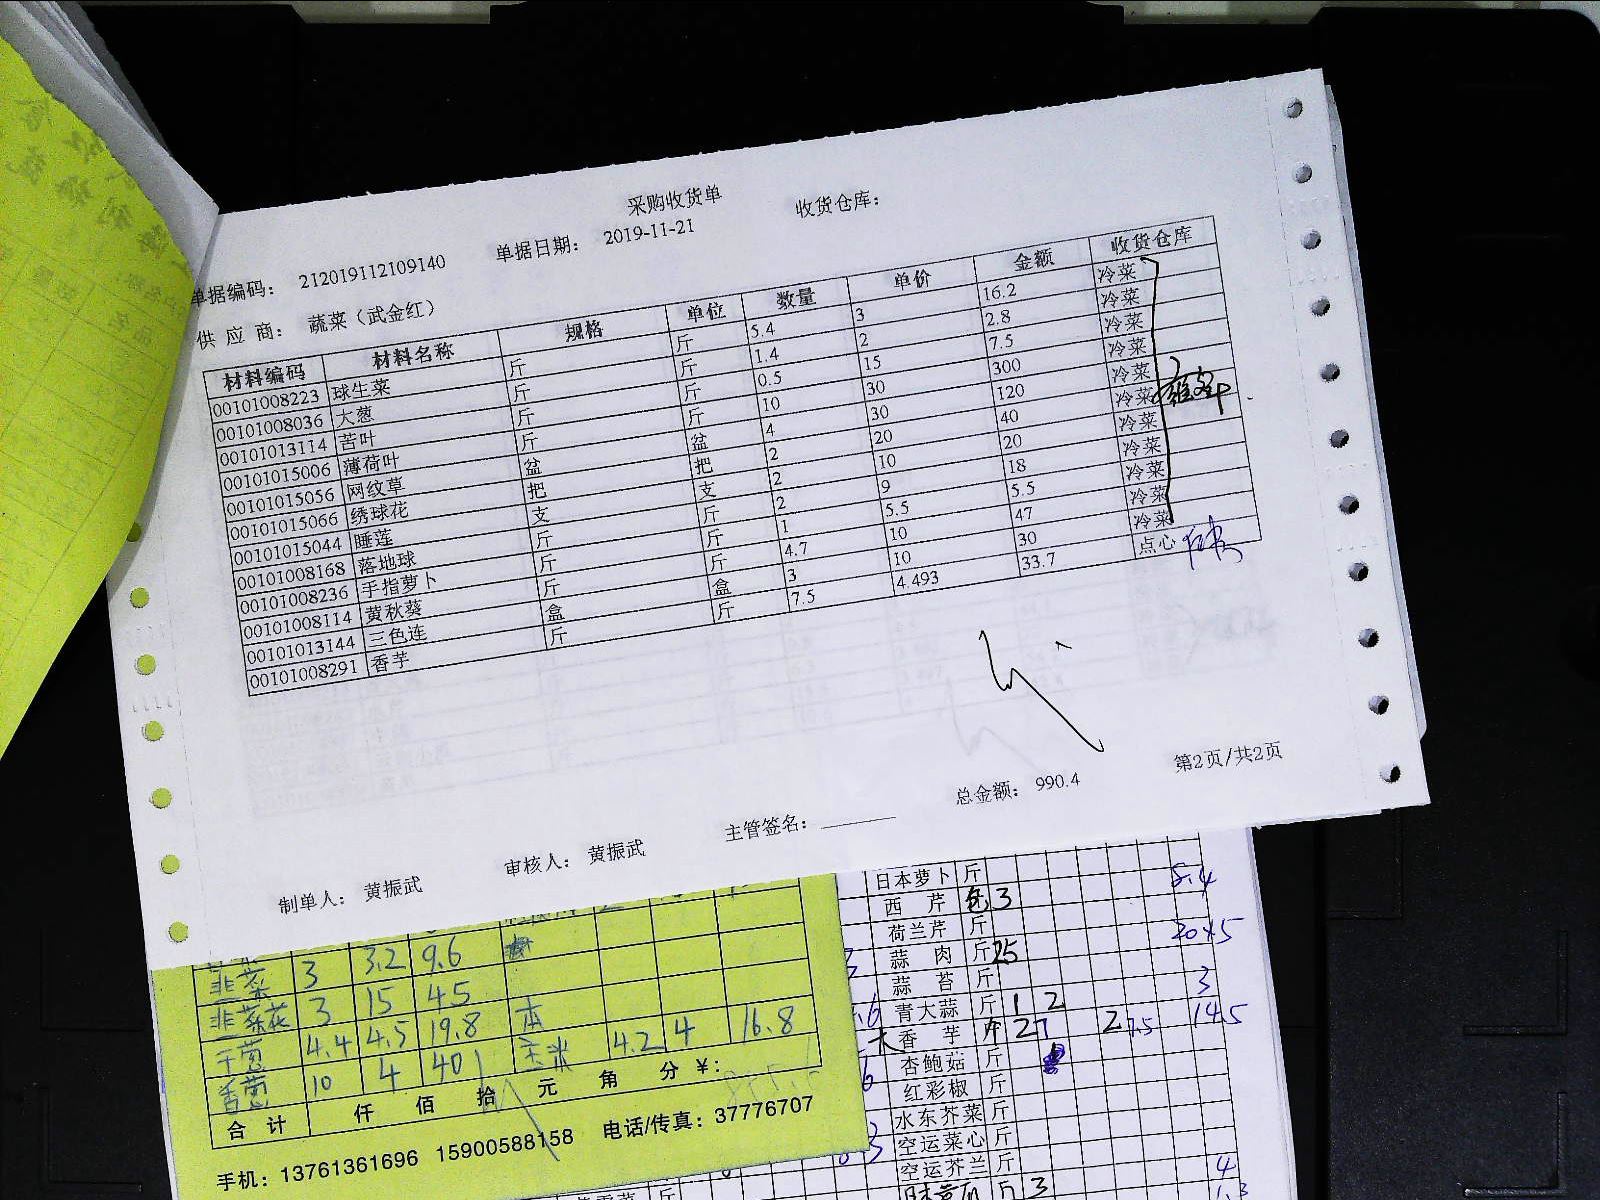 采购收货单
单据编码： 212019112109140 单据日期： 2019-11-21 收货仓库：
供 应 商： 蔬菜（武金红）
材料编码 材料名称 规格 单位 数量 单价 金额 收货仓库
00101008223 球生菜 斤 斤 5.4 3 16.2 冷菜
00101008036 大葱 斤 斤 1.4 2 2.8 冷菜
00101013114 苦叶 斤 斤 0.5 15 7.5 冷菜
00101015006 薄荷叶 斤 斤 10 30 300 冷菜
00101015056 网纹草 盆 盆 4 30 120 冷菜
00101015066 绣球花 把 把 2 20 40 冷菜
00101015044 睡莲 支 支 2 10 20 冷菜
00101008168 落地球 斤 斤 2 9 18 冷菜
00101008236 手指萝卜 斤 斤 1 5.5 5.5 冷菜
00101008114 黄秋葵 斤 斤 4.7 10 47 冷菜
00101013144 三色连 盒 盒 3 10 30 冷菜
00101008291 香芋 斤 斤 7.5 4.493 33.7 点心
总金额： 990.4 第2页/共2页
制单人： 黄振武 审核人： 黄振武 主管签名：
韭菜 3 3.2 9.6
韭菜花 3 15 45
干葱 4.4 4.5 19.8 玉米 4.2 4 16.8
香葱 10 4 40
合 计 仟 佰 拾 元 角 分 ¥:
手机：13761361696 15900588158 电话/传真：37776707
日本萝卜 斤 5.4
西 芹 3
荷兰芹 斤
蒜 肉 斤 25
蒜 苔 斤 3
青大蒜 斤 1 2
香 芋 14.5
杏鲍菇 斤
红彩椒 斤
水东芥菜 斤
空运菜心 斤
空运芥兰 斤 4